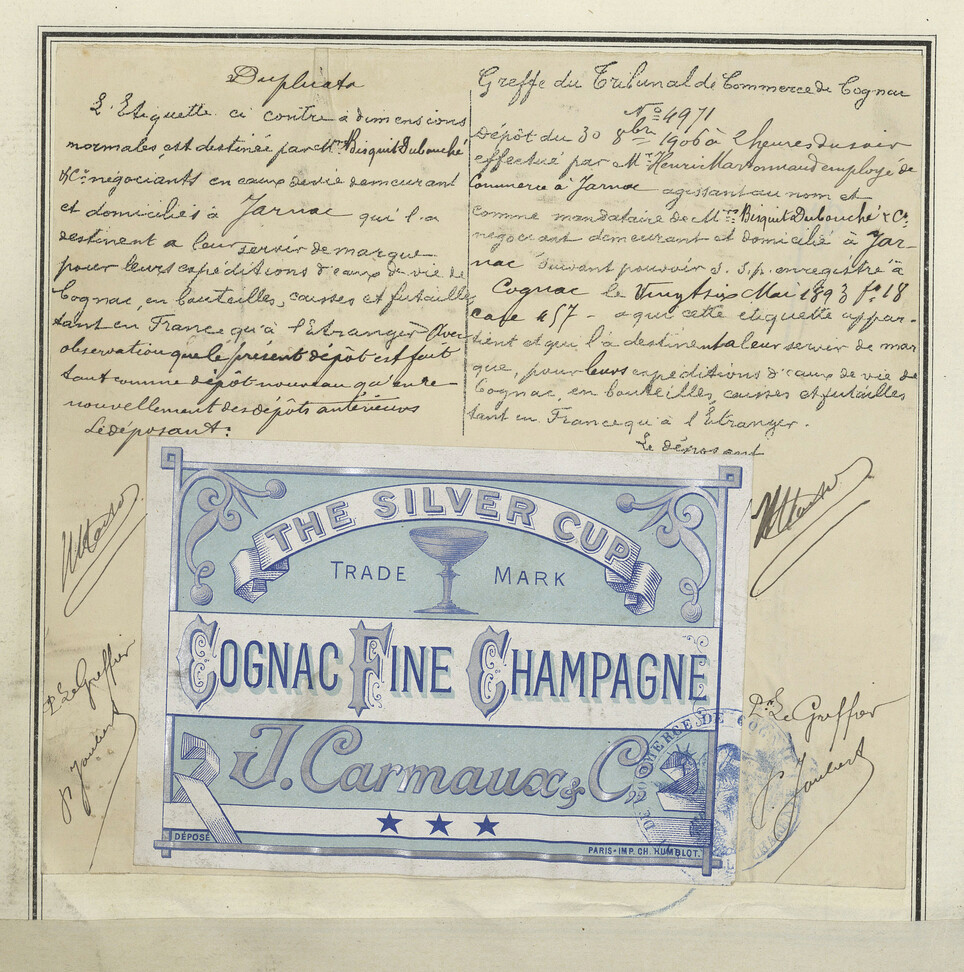 Duplicata
L'Etiquette ci contre à dimensions
normales, est destinée par Mrs Bisquit Dubouché
& Co négociants en eaux de vie demeurant
et domiciliés à Jarnac qui l'a
destinent a leur servir de marque
pour leurs expéditions d'eaux de vie de
Cognac, en bouteilles, caisses et futailles
tant en France qu'à l'Etranger. Avec
observation que le présent dépôt est fait
tant comme dépôt nouveau qu'en re-
nouvellement des dépôts antérieurs
Le déposant:
Greffe du Tribunal de Commerce de Cognac
No 4971
Dépôt du 30 8bre 1906 à 2 heures du soir
effectué par Mr Henri Martonnaud employé de
Commerce à Jarnac agissant au nom et
comme mandataire de Mrs Bisquit Dubouché & Co
négociant demeurant et domicilié à Jar-
nac suivant pouvoir s. s. p. enregistré à
Cognac le Vingt six Mai 1893 fo 18
case 457 - a que cette etiquette appar-
tient et qu'il a destinent a leur servir de mar
que, pour leurs expéditions d'eaux de vie de
Cognac, en bouteilles, caisses et futailles
tant en France qu'à l'Etranger.
Le déposant
THE SILVER CUP
TRADE MARK
COGNAC FINE CHAMPAGNE
J. Carmaux & Co
DÉPOSÉ
PARIS - IMP. CH. HUMBLOT.
Pr Le Greffier
Joubert
Pr Le Greffier
Joubert
COMMERCE DE COGNAC